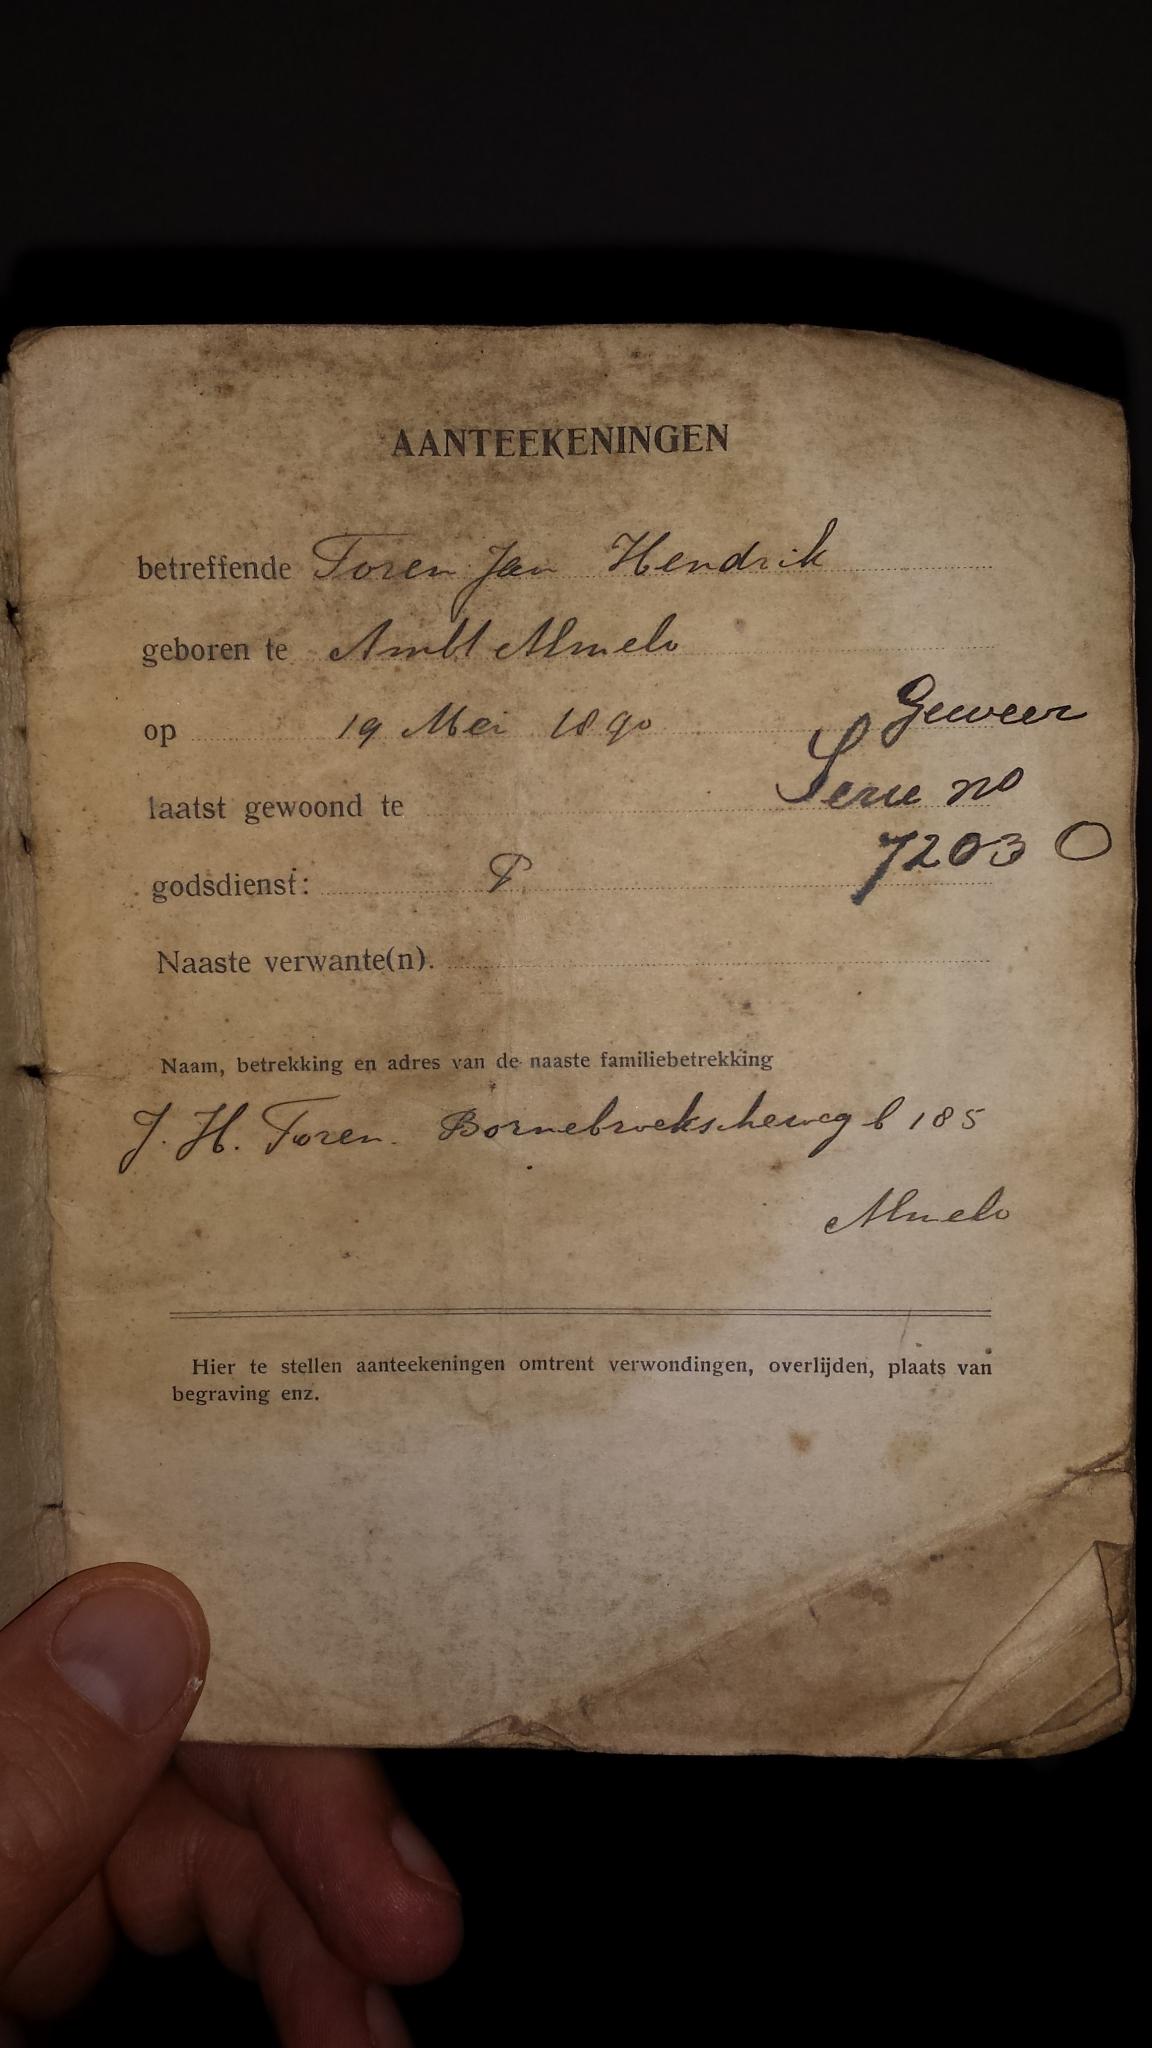 AANTEEKENINGEN
betreffende Toren Jan Hendrik
geboren te Ambt Almelo
op 19 Mei 1890
Geweer
laatst gewoond te
Serie no
7203 O
godsdienst: P
Naaste verwante(n).
Naam, betrekking en adres van de naaste familiebetrekking
J. H. Toren. Bornebroekscheweg b 185
Almelo
Hier te stellen aanteekeningen omtrent verwondingen, overlijden, plaats van
begraving enz.